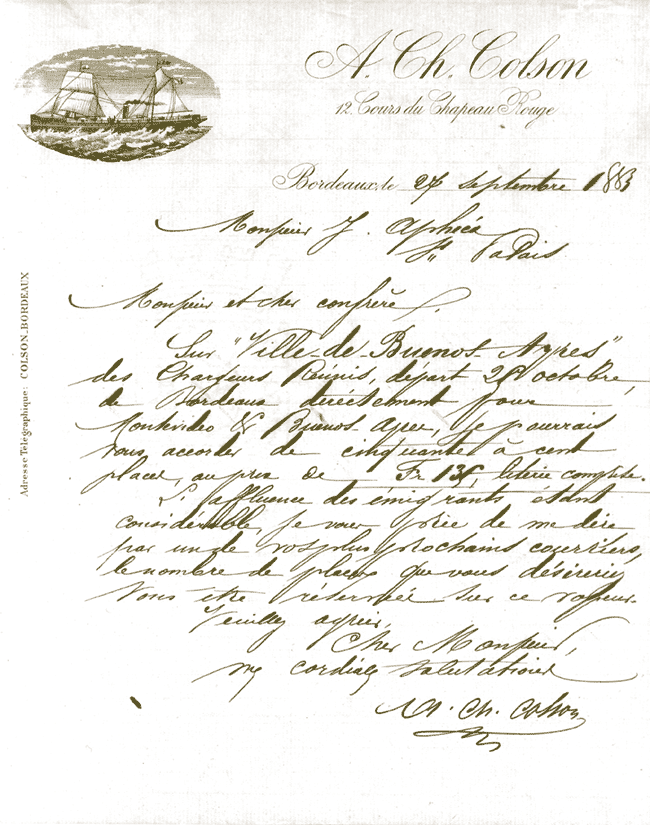 A. Ch. Colson
12. Cours du Chapeau Rouge
Bordeaux, le septembre 1883
Monsieur J. Aphéça
St Palais
Adresse Télégraphique: COLSON_BORDEAUX
Monsieur et cher confrère,
Sur "Ville-de-Buenos-Ayres"
des Chargeurs Réunis, départ octobre,
de Bordeaux directement pour
Montevideo & Buenos Ayres, je pourrais
vous accorder de cinquante à cent
places, au prix de Fr literie comprise.
L'affluence des émigrants étant
considérable, je vous prie de me dire
par un de vos plus prochains courriers,
le nombre de places que vous désireriez
vous être réservées sur ce vapeur.
Veuillez agréer,
Cher Monsieur,
mes cordiales salutations
A. Ch. Colson